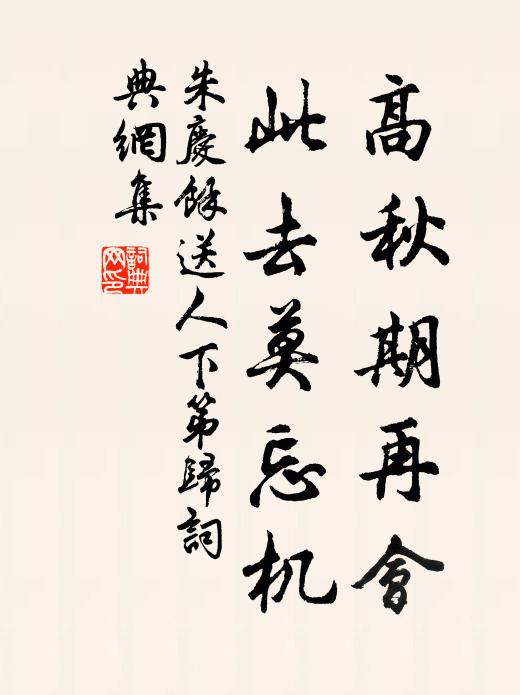 高秋期再會
此去莫忘机
朱慶餘送人下第歸詞
典網集
詞典网印